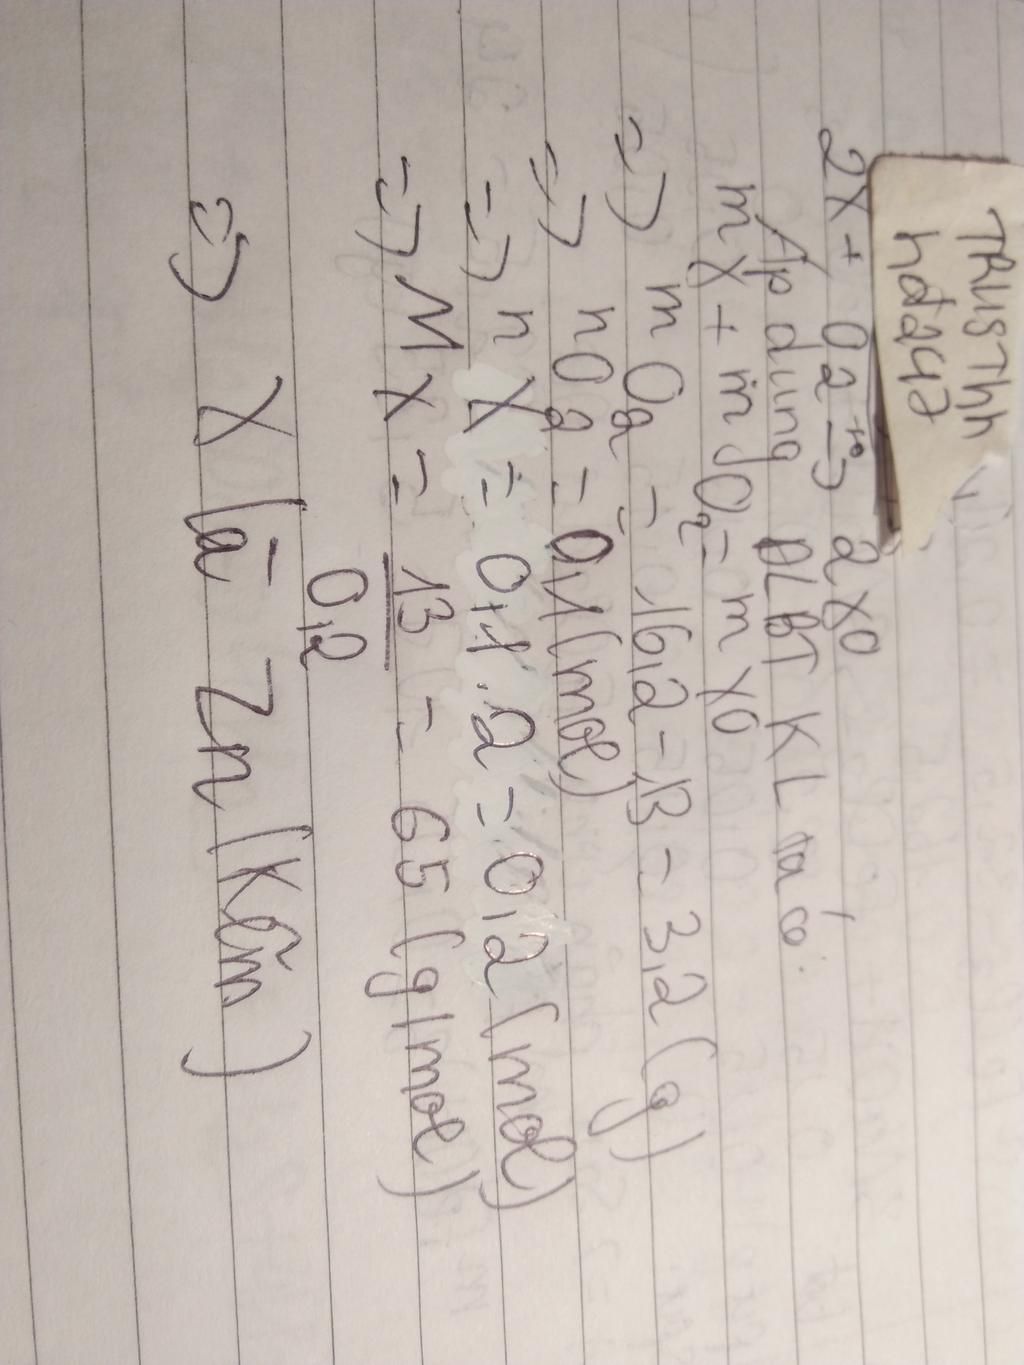 TRUSTHH
hdz247
2X + O2 -to-> 2XO
Áp dụng ĐLBT KL ta có:
mX + mO2 = mXO
=> mO2 = 16,2 - 13 = 3,2 (g)
=> nO2 = 0,1 (mol)
=> nX = 0,1.2 = 0,2 (mol)
=> MX = 13/0,2 = 65 (g/mol)
=> X là Zn (Kẽm)